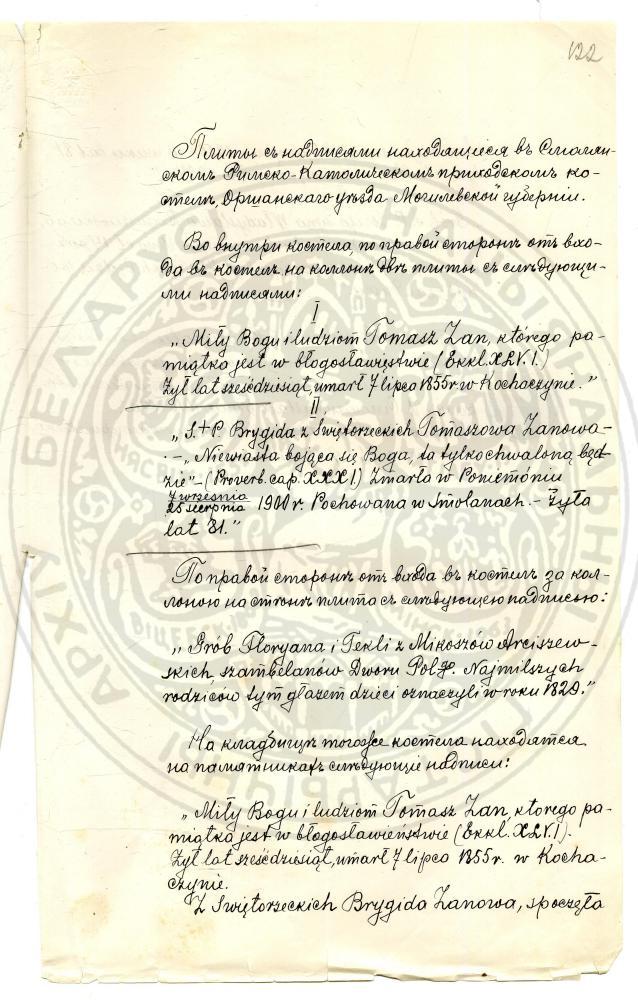 122
Плиты съ надписями находящіеся въ Смолян-
скомъ Римско-Католическомъ приходскомъ ко-
стелѣ, Оршанскаго уѣзда Могилевской губерніи.
Во внутри костела, по правой сторонѣ отъ вхо-
да въ костелъ на колонѣ двѣ плиты съ слѣдующи-
ми надписями:
I
„Miły Bogu i ludziom Tomasz Zan, którego pa-
miątka jest w błogosławięstwie (Ekkl. XLV. I.)
Żył lat sześćdziesiąt, umarł 7 lipca 1855 r. w Kochaczynie."
II
„Ś.+P. Brygida z Świętorzeckich Tomaszowa Zanowa-
.-„Niewiasta bojąca się Boga, ta tylko chwaloną będ-
zie"-(Proverb. cap. XXXI) Zmarła w Poniemóniu
7 wrzesnia
25 sierpnia 1900 r. Pochowana w Smolanach.- Żyła
lat 81."
По правой сторонѣ отъ входа въ костелъ за кол-
лоною на стѣнѣ плита съ слѣдующею надписью:
„Grób Floryana i Tekli z Mikoszów Arciszew-
skich szambelanów Dworu Polg. Najmilszych
rodziców tym głazem dzieci oznaczyli w roku 1829."
На кладбищѣ тогоже костела находятся
на памятникахъ слѣдующіе надписи:
„Miły Bogu i ludziom Tomasz Zan, ktorego pa-
miątka jest w błogosławieństwie (Ekkl. XLV. I).
Żył lat sześćdziesiąt, umarł 7 lipca 1855 r. w Kocha-
czynie.
Z Swiętorzeckich Brygida Zanowa, spoczęła